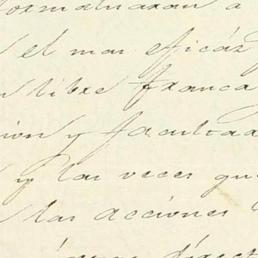 formalizaran a
el mas eficáz
libre franca
ion y facultad
y las veces que
las acciones